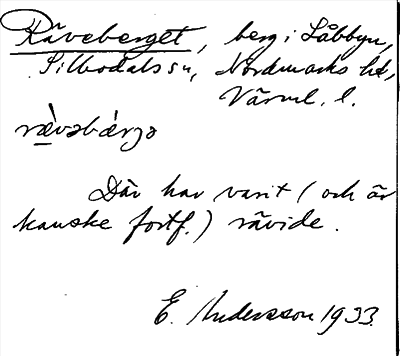 Räveberget, berg i Låbbyn,
Silbodals sn, Nordmarks hd,
Värml. l.
ræ̀vəbæ̀rjə
Där har varit (och är
kanske fortf.) rävide.
E. Andersson 1933.